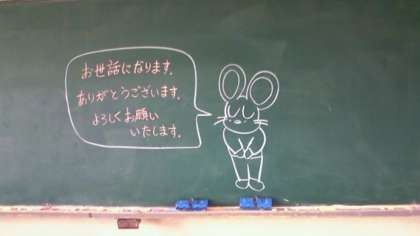 お世話になります.
ありがとうございます.
よろしくお願い
いたします.